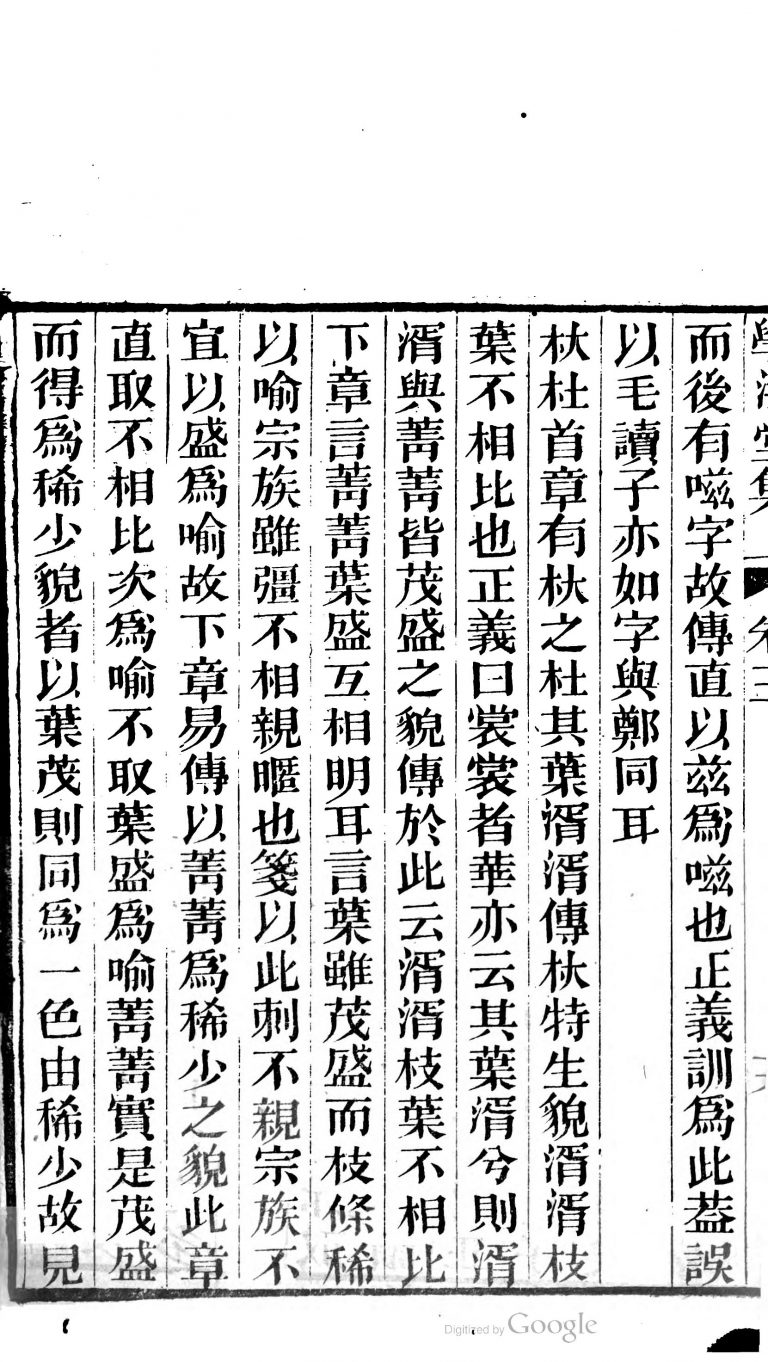 學海堂集 卷三
而後有嗞字故傳直以茲爲嗞也正義訓爲此葢誤
以毛讀子亦如字與鄭同耳
杕杜首章有杕之杜其葉湑湑傳杕特生貌湑湑枝
葉不相比也正義曰裳裳者華亦云其葉湑兮則湑
湑與菁菁皆茂盛之貌傳於此云湑湑枝葉不相比
下章言菁菁葉盛互相明耳言葉雖茂盛而枝條稀
以喻宗族雖彊不相親暱也箋以此刺不親宗族不
宜以盛爲喻故下章易傳以菁菁爲稀少之貌此章
直取不相比次爲喻不取葉盛爲喻菁菁實是茂盛
而得爲稀少貌者以葉茂則同爲一色由稀少故見
Digitized by Google